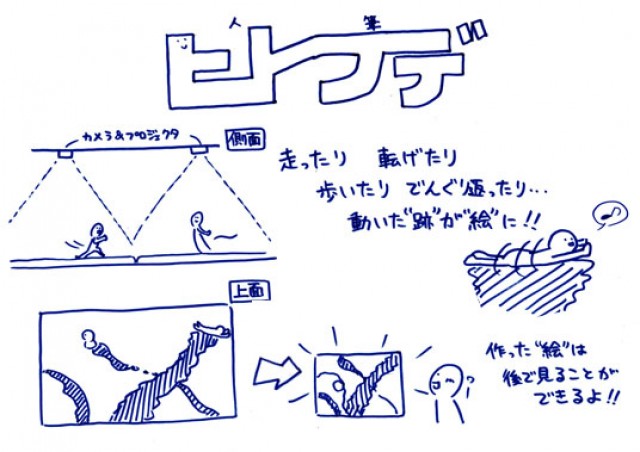 人 筆
ヒトフデ
カメラ&プロジェクタ
側面
走ったり 転げたり
歩いたり でんぐり返ったり…
動いた"跡"が"絵"に!!
上面
作った"絵"は
後で見ることが
できるよ!!